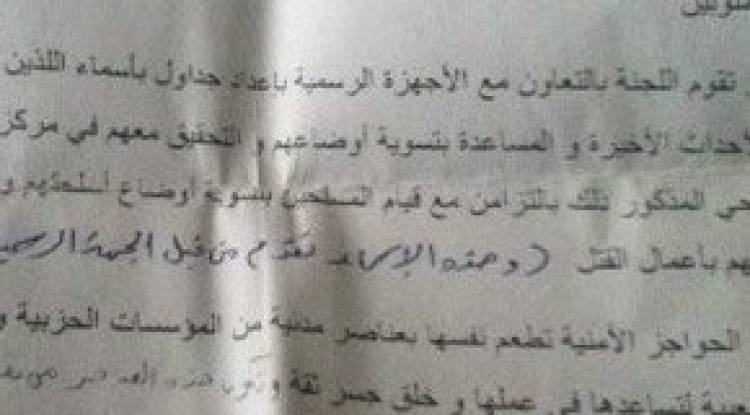 تقوم اللجنة بالتعاون مع الأجهزة الرسمية بإعداد جداول بأسماء اللذين
الأحداث الأخيرة و المساعدة بتسوية أوضاعهم و التحقيق معهم في مركز
حي المذكور ذلك بالتزامن مع قيام المسلحين بتسوية أوضاع أسلحتهم و
هم بأعمال القتل (وهذه الإسماء تقدم من قبل الجهة الرسمية
الحواجز الأمنية تطعم نفسها بعناصر مدنية من المؤسسات الحزبية و
لتساعدها في عملها و خلق جسر ثقة وتكون هذه العناصر من